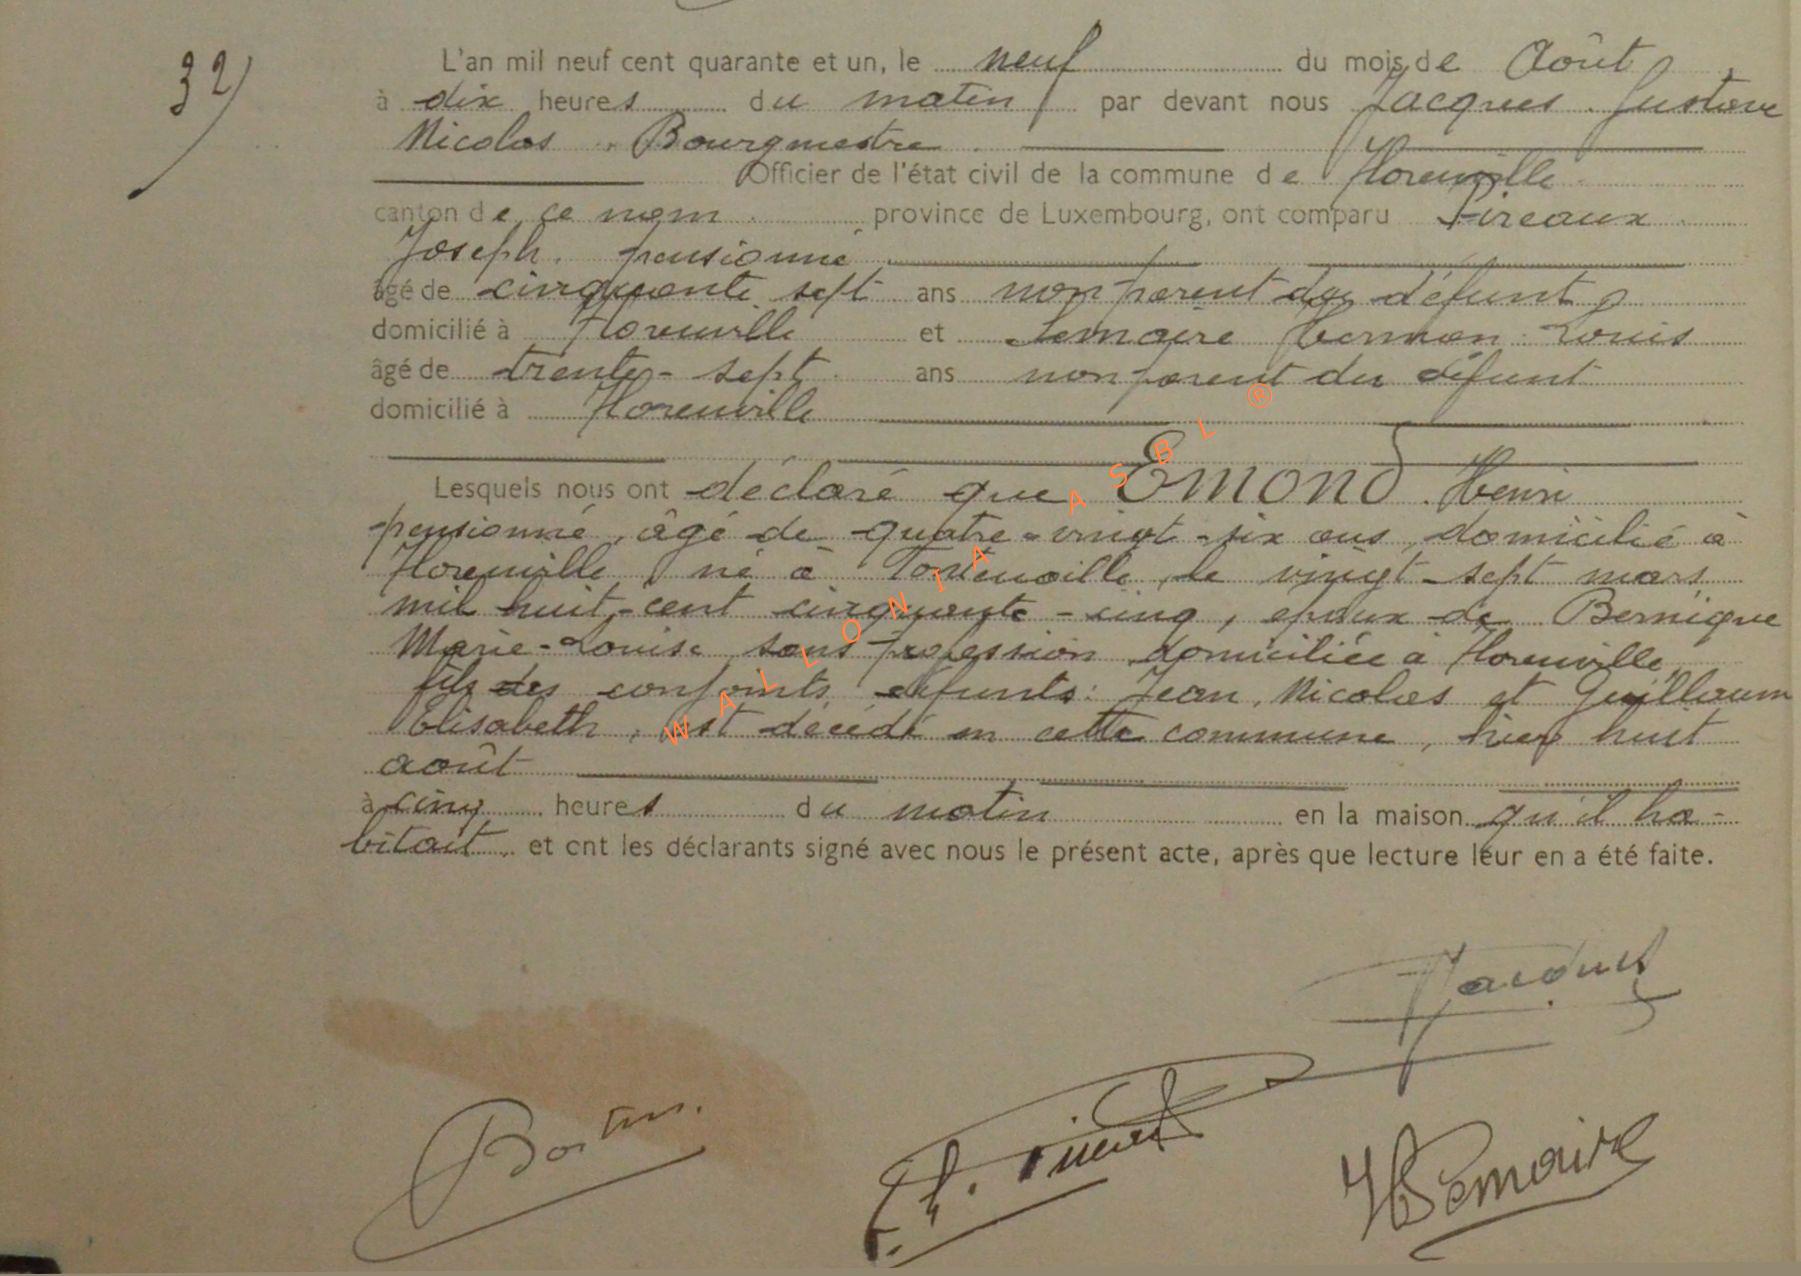 32)
L'an mil neuf cent quarante et un, le neuf du mois de Août
à dix heures du matin par devant nous Jacques. Gustave
Nicolas. Bourgmestre.
Officier de l'état civil de la commune de Florenville
canton de ce nom. province de Luxembourg, ont comparu Pireaux
Joseph. pensionné
âgé de cinquante sept ans non parent du défunt
domicilié à Florenville et Lemaire Louis
âgé de trente-sept ans non parent du défunt
domicilié à Florenville
Lesquels nous ont déclaré que EMOND. Henri
pensionné, âgé de quatre-vingt-six ans, domicilié à
Florenville né à Fontenoille le vingt-sept mars
mil huit-cent cinquante-cinq, époux de Bernique
Marie-Louise sans profession domiciliée à Florenville,
fils des conjoints défunts: Jean, Nicolas et Guillaum
Elisabeth, est décédé en cette commune, hier huit
août
à cinq heures du matin en la maison qu'il ha-
bitait. et ont les déclarants signé avec nous le présent acte, après que lecture leur en a été faite.
WALLONIA ASBL ®
HLemaire